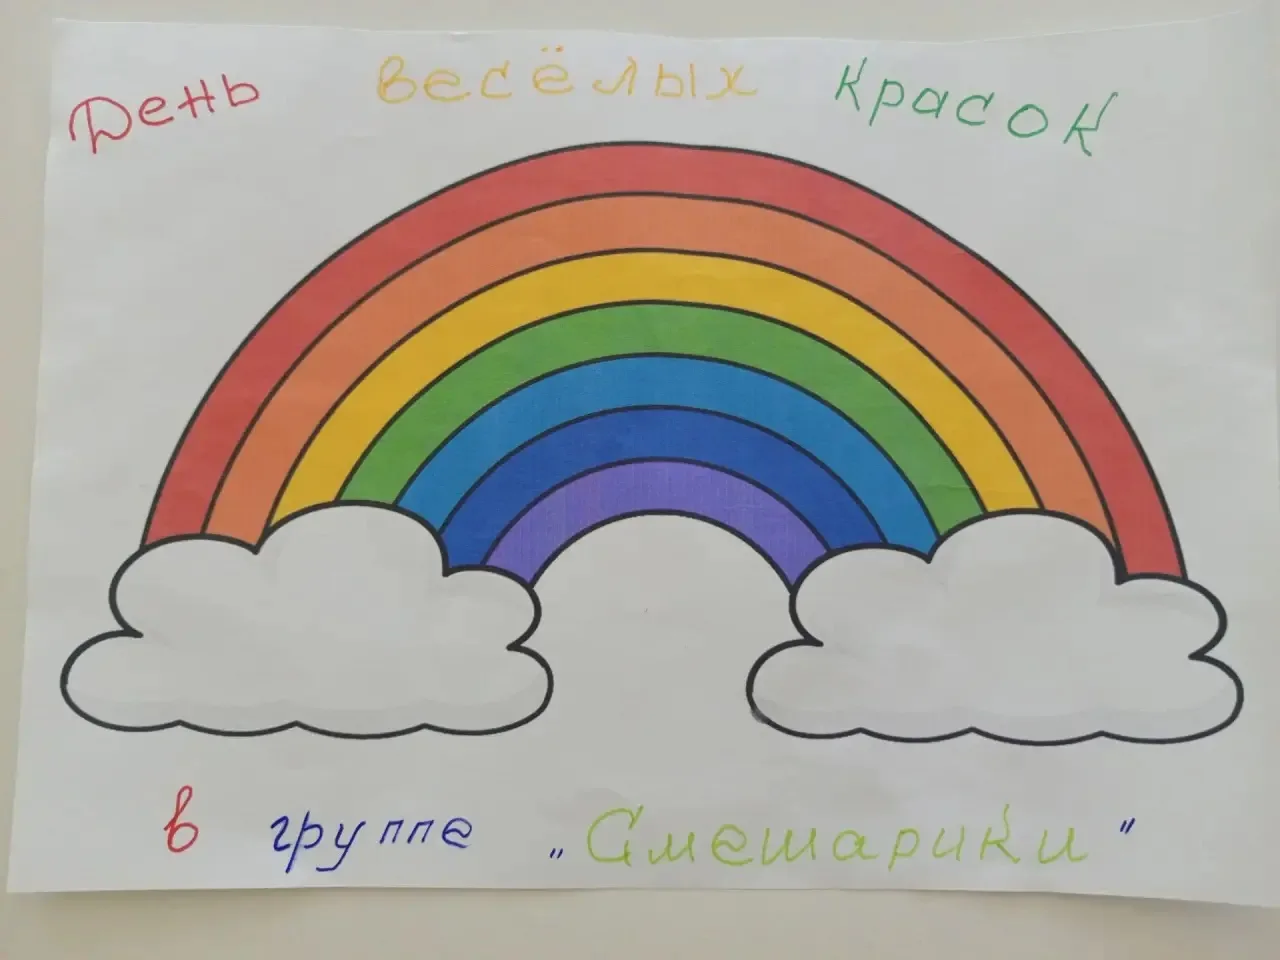 День весёлых красок
в группе „Смешарики"